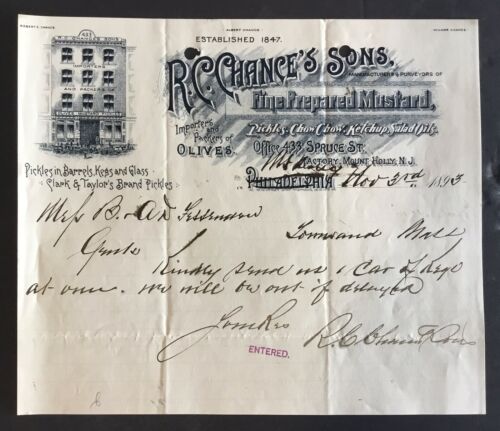 ROBERT E. CHANCE
ALBERT CHANCE
WILLIAM CHANCE
ESTABLISHED 1847.
433
R.C. CHANCE'S SONS
IMPORTERS
AND PACKERS
OF
OLIVES, MUSTARD, PICKLES
R.C. CHANCE'S SONS.
MANUFACTURERS & PURVEYORS OF
Fine Prepared Mustard,
Importers and Packers of OLIVES.
Pickles, Chow Chow, Ketchup, Salad Oils.
Office 433 SPRUCE ST.
FACTORY, MOUNT HOLLY, N.J.
Pickles in Barrels, Kegs and Glass
Clark & Taylor's Brand Pickles
PHILADELPHIA Nov 3rd 1893
Mess B. & D
Townsend Mass
Gents
Kindly send us 1 Car of Kegs
at once. We will be out if delayed
Yours Res
R C Chances Sons
ENTERED.